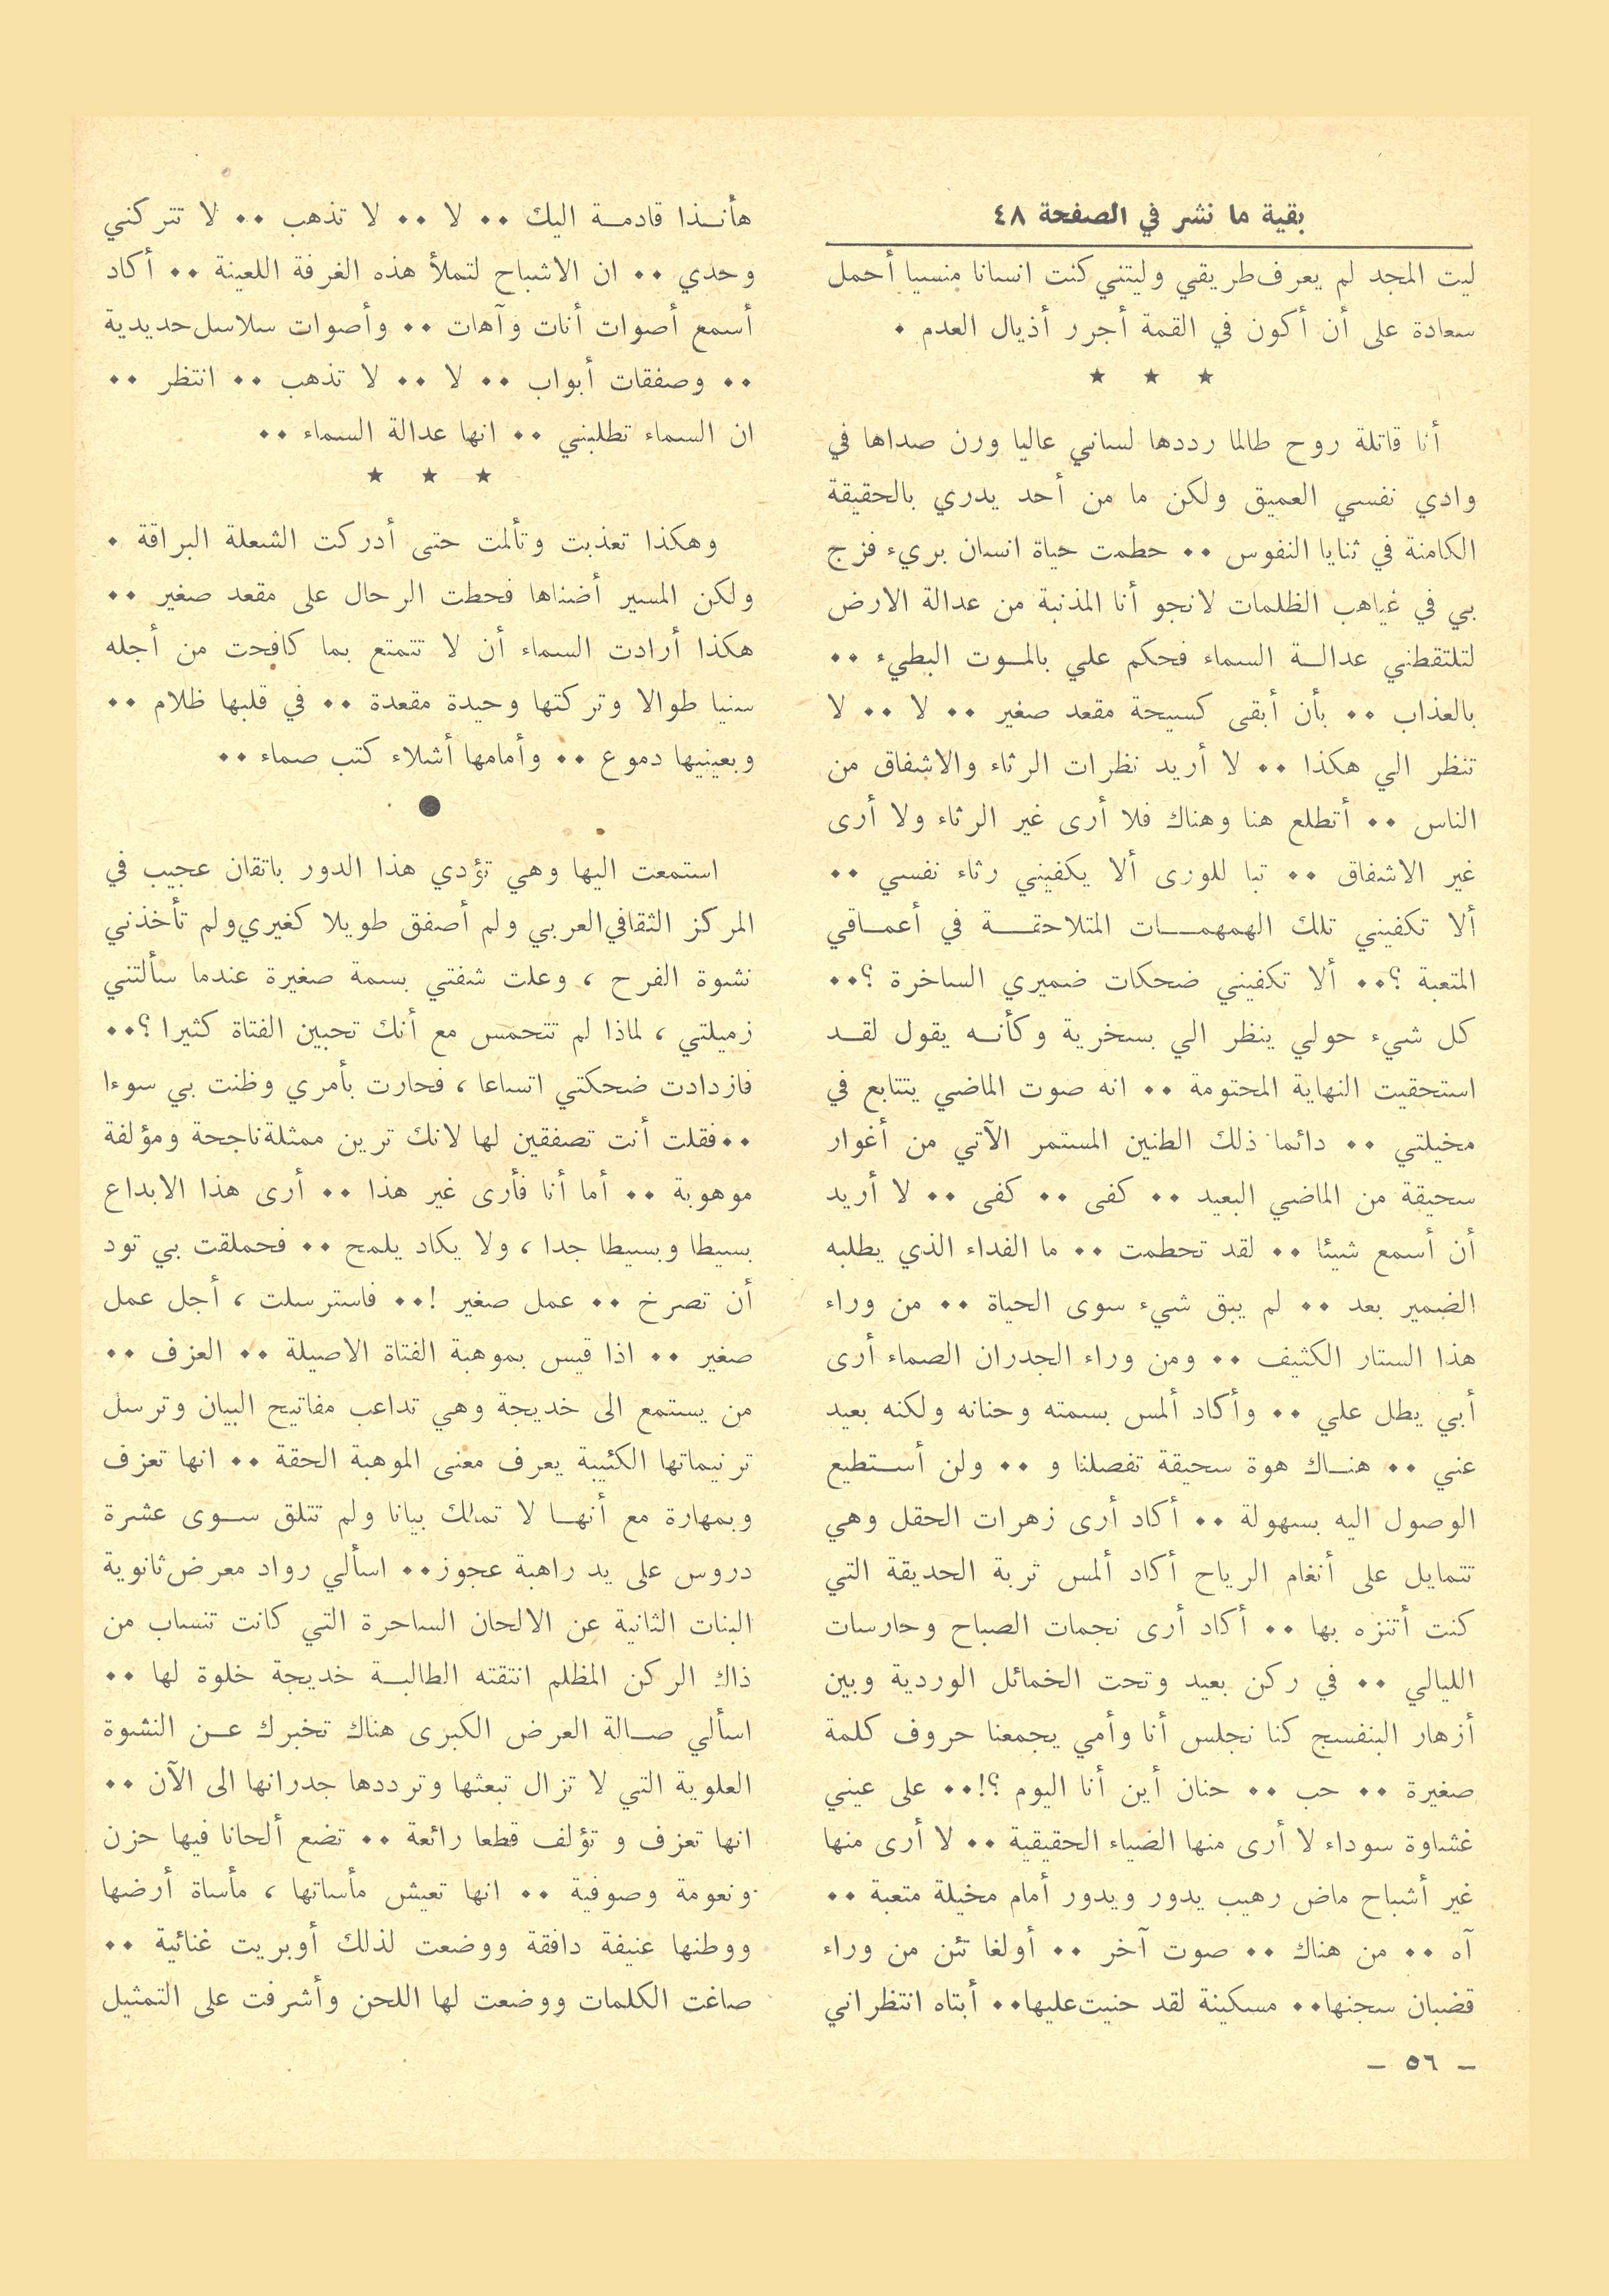 بقية ما نشر في الصفحة ٤٨
ليت المجد لم يعرف طريقي وليتني كنت انسانا منسيا أحمل
سعادة على أن أكون في القمة أجرر أذيال العدم ٠
★ ★ ★
أنا قاتلة روح طالما رددها لساني عاليا ورن صداها في
وادي نفسي العميق ولكن ما من أحد يدري بالحقيقة
الكامنة في ثنايا النفوس ٠٠ حطمت حياة انسان بريء فزج
بي في غياهب الظلمات لانجو أنا المذنبة من عدالة الارض
لتلتقطني عدالة السماء فحكم علي بالموت البطيء ٠٠
بالعذاب ٠٠ بأن أبقى كسيحة مقعد صغير ٠٠ لا ٠٠ لا
تنظر الي هكذا ٠٠ لا أريد نظرات الرثاء والاشفاق من
الناس ٠٠ أتطلع هنا وهناك فلا أرى غير الرثاء ولا أرى
غير الاشفاق ٠٠ تبا للورى ألا يكفيني رثاء نفسي ٠٠
ألا تكفيني تلك الهمهمات المتلاحقة في أعماقي
المتعبة ؟٠٠ ألا تكفيني ضحكات ضميري الساخرة ؟٠٠
كل شيء حولي ينظر الي بسخرية وكأنه يقول لقد
استحقيت النهاية المحتومة ٠٠ انه صوت الماضي يتتابع في
مخيلتي ٠٠ دائما ذلك الطنين المستمر الآتي من أغوار
سحيقة من الماضي البعيد ٠٠ كفى ٠٠ كفى ٠٠ لا أريد
أن أسمع شيئا ٠٠ لقد تحطمت ٠٠ ما الفداء الذي يطلبه
الضمير بعد ٠٠ لم يبق شيء سوى الحياة ٠٠ من وراء
هذا الستار الكثيف ٠٠ ومن وراء الجدران الصماء أرى
أبي يطل علي ٠٠ وأكاد ألمس بسمته وحنانه ولكنه بعيد
عني ٠٠ هناك هوة سحيقة تفصلنا و ٠٠ ولن أستطيع
الوصول اليه بسهولة ٠٠ أكاد أرى زهرات الحقل وهي
تتمايل على أنغام الرياح أكاد ألمس تربة الحديقة التي
كنت أتنزه بها ٠٠ أكاد أرى نجمات الصباح وحارسات
الليالي ٠٠ في ركن بعيد وتحت الخمائل الوردية وبين
أزهار البنفسج كنا نجلس أنا وأمي يجمعنا حروف كلمة
صغيرة ٠٠ حب ٠٠ حنان أين أنا اليوم ؟!٠٠ على عيني
غشاوة سوداء لا أرى منها الضياء الحقيقية ٠٠ لا أرى منها
غير أشباح ماض رهيب يدور ويدور أمام مخيلة متعبة ٠٠
آه ٠٠ من هناك ٠٠ صوت آخر ٠٠ أولغا تئن من وراء
قضبان سجنها٠٠ مسكينة لقد حنيت عليها٠٠ أبتاه انتظراني
هأنذا قادمة اليك ٠٠ لا ٠٠ لا تذهب ٠٠ لا تتركني
وحدي ٠٠ ان الاشباح لتملأ هذه الغرفة اللعينة ٠٠ أكاد
أسمع أصوات أنات وآهات ٠٠ وأصوات سلاسل حديدية
٠٠ وصفقات أبواب ٠٠ لا ٠٠ لا تذهب ٠٠ انتظر ٠٠
ان السماء تطلبني ٠٠ انها عدالة السماء ٠٠
★ ★ ★
وهكذا تعذبت وتألمت حتى أدركت الشعلة البراقة ٠
ولكن المسير أضناها فحطت الرحال على مقعد صغير ٠٠
هكذا أرادت السماء أن لا تتمتع بما كافحت من أجله
سنيا طوالا وتركتها وحيدة مقعدة ٠٠ في قلبها ظلام ٠٠
وبعينيها دموع ٠٠ وأمامها أشلاء كتب صماء ٠٠
●
استمعت اليها وهي تؤدي هذا الدور باتقان عجيب في
المركز الثقافي العربي ولم أصفق طويلا كغيري ولم تأخذني
نشوة الفرح ، وعلت شفتي بسمة صغيرة عندما سألتني
زميلتي ، لماذا لم تتحمس مع أنك تحبين الفتاة كثيرا ؟٠٠
فازدادت ضحكتي اتساعا ، فحارت بأمري وظنت بي سوءا
٠٠ فقلت أنت تصفقين لها لانك ترين ممثلة ناجحة ومؤلفة
موهوبة ٠٠ أما أنا فأرى غير هذا ٠٠ أرى هذا الابداع
بسيطا وبسيطا جدا ، ولا يكاد يلمح ٠٠ فحملقت بي تود
أن تصرخ ٠٠ عمل صغير !٠٠ فاسترسلت ، أجل عمل
صغير ٠٠ اذا قيس بموهبة الفتاة الاصيلة ٠٠ العزف ٠٠
من يستمع الى خديجة وهي تداعب مفاتيح البيان وترسل
ترنيماتها الكئيبة يعرف معنى الموهبة الحقة ٠٠ انها تعزف
وبمهارة مع أنها لا تملك بيانا ولم تتلق سوى عشرة
دروس على يد راهبة عجوز٠٠ اسألي رواد معرض ثانوية
البنات الثانية عن الالحان الساحرة التي كانت تنساب من
ذاك الركن المظلم انتقته الطالبة خديجة خلوة لها ٠٠
اسألي صالة العرض الكبرى هناك تخبرك عن النشوة
العلوية التي لا تزال تبعثها وترددها جدرانها الى الآن ٠٠
انها تعزف و تؤلف قطعا رائعة ٠٠ تضع ألحانا فيها حزن
ونعومة وصوفية ٠٠ انها تعيش مأساتها ، مأساة أرضها
ووطنها عنيفة دافقة ووضعت لذلك أوبريت غنائية ٠٠
صاغت الكلمات ووضعت لها اللحن وأشرفت على التمثيل
– ٥٦ –